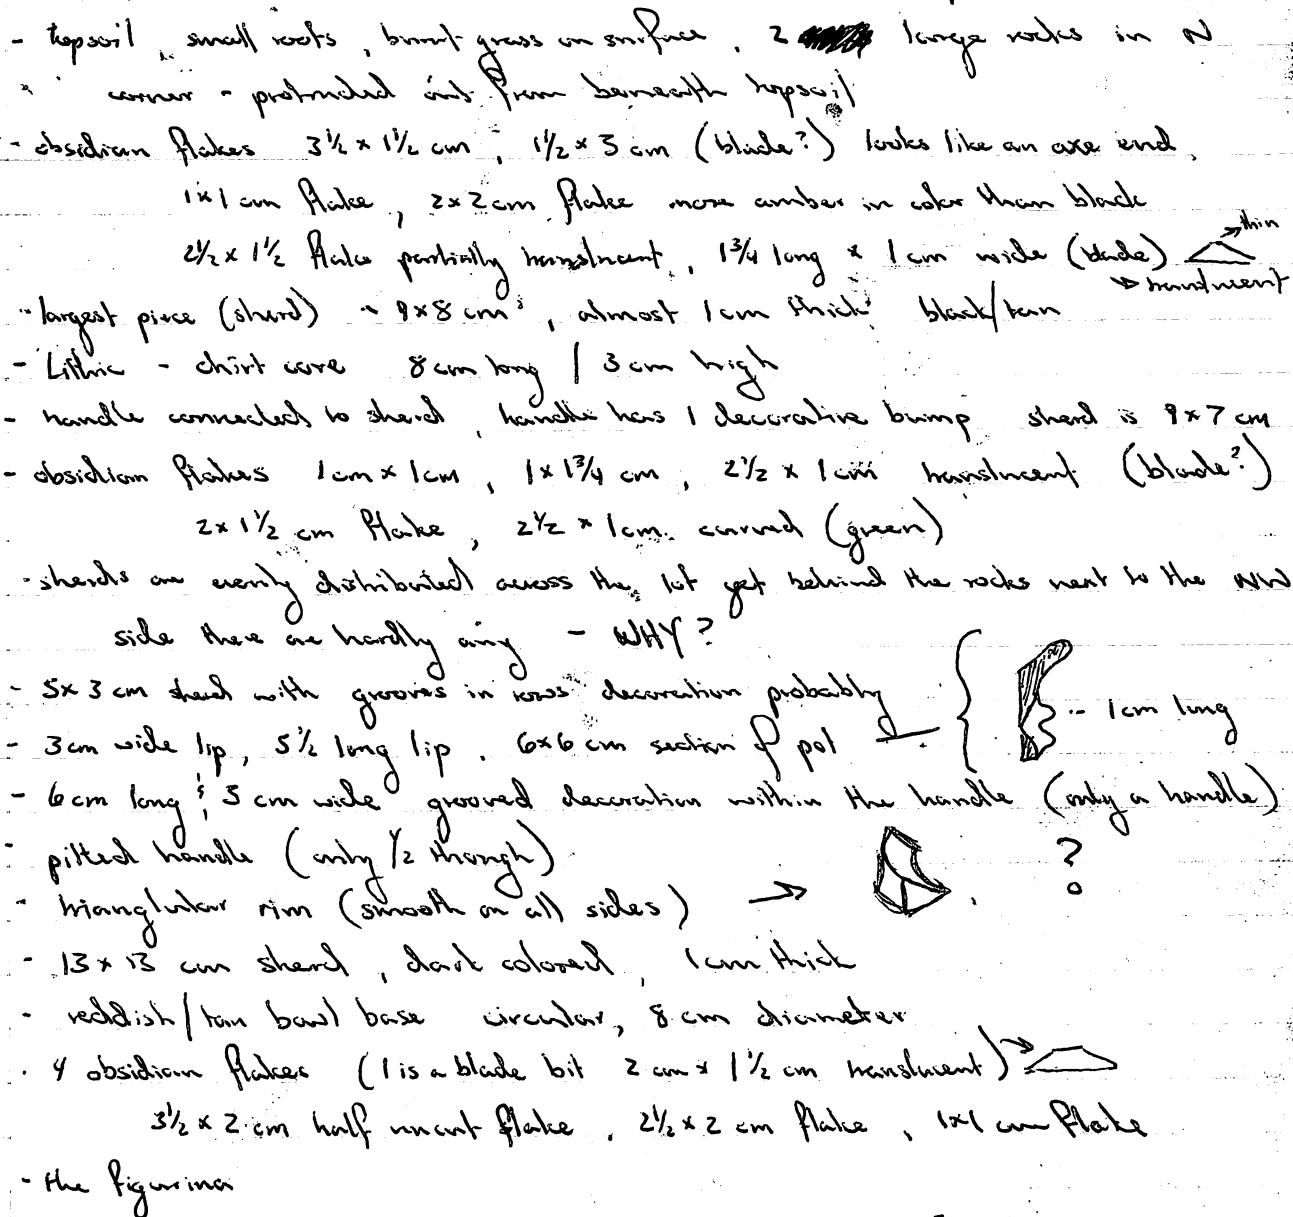 - topsoil, small roots, burnt grass on surface, 2 large rocks in N
corner - protruded out from beneath topsoil
- obsidian flakes 3½ x 1½ cm, 1½ x 3 cm (blade?) looks like an axe end,
1x1 cm flake, 2x2 cm flake more amber in color than black
2½ x 1½ flake partially translucent, 1¾ long x 1cm wide (blade) → thin
→ translucent
- largest piece (sherd) - 9x8 cm, almost 1cm thick black/tan
- Lithic - chirt core 8cm long / 3cm high
- handle connected to sherd, handle has 1 decorative bump sherd is 9x7 cm
- obsidian flakes 1cm x 1cm, 1 x 1¾ cm, 2½ x 1cm translucent (blade?)
2 x 1½ cm flake, 2½ x 1cm curved (green)
- sherds are evenly distributed across the lot yet behind the rocks next to the NW
side there are hardly any - WHY?
- 5x3 cm sherd with grooves in rows decoration probably
- 3cm wide lip, 5½ long lip, 6x6 cm section of pot - 1cm long
- 6cm long & 3 cm wide grooved decoration within the handle (only a handle)
- pitted handle (only ½ though)
- trianglular rim (smooth on all sides) → ?
- 13 x 13 cm sherd, dark colored, 1cm thick
- reddish/tan bowl base circular, 8 cm diameter
- 4 obsidian flakes (1 is a blade bit 2 cm x 1½ cm translucent) →
3½ x 2 cm half uncut flake, 2½ x 2 cm flake, 1x1 cm flake
- the figurina